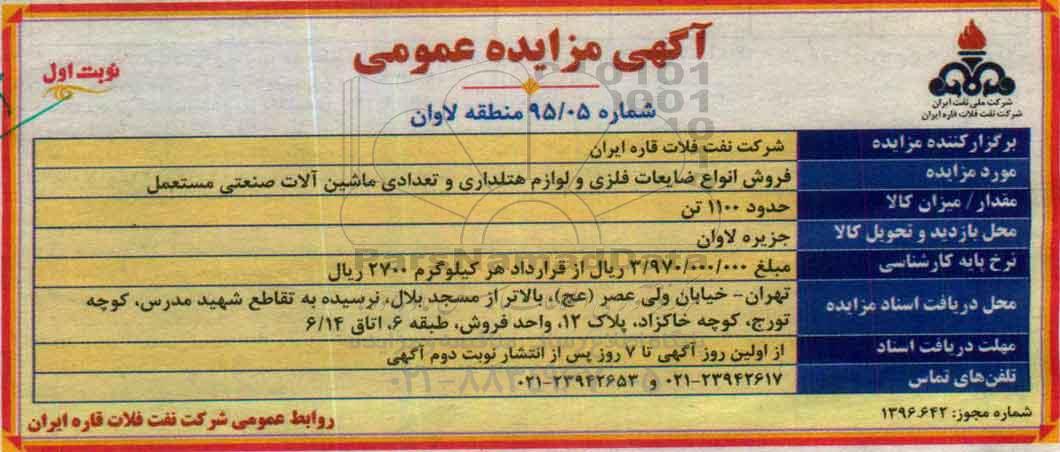 آگهی مزایده عمومی
نوبت اول
شماره ۹۵/۰۵ منطقه لاوان
شرکت ملی نفت ایران
شرکت نفت فلات قاره ایران
برگزار کننده مزایده
شرکت نفت فلات قاره ایران
مورد مزایده
فروش انواع ضایعات فلزی و لوازم هتلداری و تعدادی ماشین آلات صنعتی مستعمل
مقدار / میزان کالا
حدود ۱۱۰۰ تن
محل بازدید و تحویل کالا
جزیره لاوان
نرخ پایه کارشناسی
مبلغ ۳/۹۷۰/۰۰۰/۰۰۰ ریال از قرارداد هر کیلوگرم ۲۷۰۰ ریال
محل دریافت اسناد مزایده
تهران- خیابان ولی عصر (عج)، بالاتر از مسجد بلال، نرسیده به تقاطع شهید مدرس، کوچه
تورج، کوچه خاکزاد، پلاک ۱۲، واحد فروش، طبقه ۶، اتاق ۶/۱۴
مهلت دریافت اسناد
از اولین روز آگهی تا ۷ روز پس از انتشار نوبت دوم آگهی
تلفن‌های تماس
۰۲۱-۲۳۹۴۲۶۱۷ و ۰۲۱-۲۳۹۴۲۶۵۳
شماره مجوز: ۱۳۹۶.۶۴۲
روابط عمومی شرکت نفت فلات قاره ایران
ParsNamadData